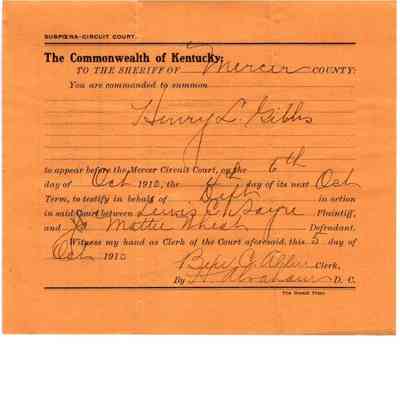 SUBPŒNA-CIRCUIT COURT.
The Commonwealth of Kentucky:
TO THE SHERIFF OF Mercer COUNTY:
You are commanded to summon
Henry L. Gibbs
to appear before the Mercer Circuit Court, on the 6th
day of Oct 1912, the day of its next Oct
Term, to testify in behalf of Deft in action
in said Court between Lewis Plaintiff,
and Mottie Defendant.
Witness my hand as Clerk of the Court aforesaid, this 5 day of
Oct 191
Clerk,
By D. C.